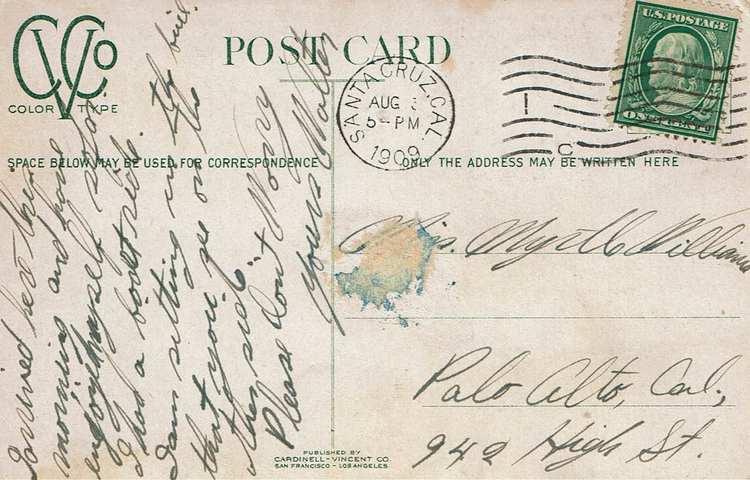 CVCo
COLOR TYPE
POST CARD
SANTA CRUZ, CAL.
AUG 3
5-PM
1909
1
C
U.S. POSTAGE
ONE CENT
SPACE BELOW MAY BE USED FOR CORRESPONDENCE
ONLY THE ADDRESS MAY BE WRITTEN HERE
I arrived here this
morning and
enjoyed myself so far.
I had a boat ride.
I am sitting in the bird.
that you see on the
this side.
Please don't worry
Yours Walter
Mrs. Myrtle Williams
Palo Alto, Cal.,
949 High St.
PUBLISHED BY
CARDINELL-VINCENT CO.
SAN FRANCISCO - LOS ANGELES